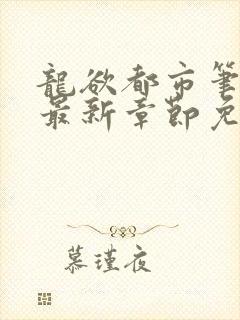 龍欲都市筆
最新章節免
慕瑾夜